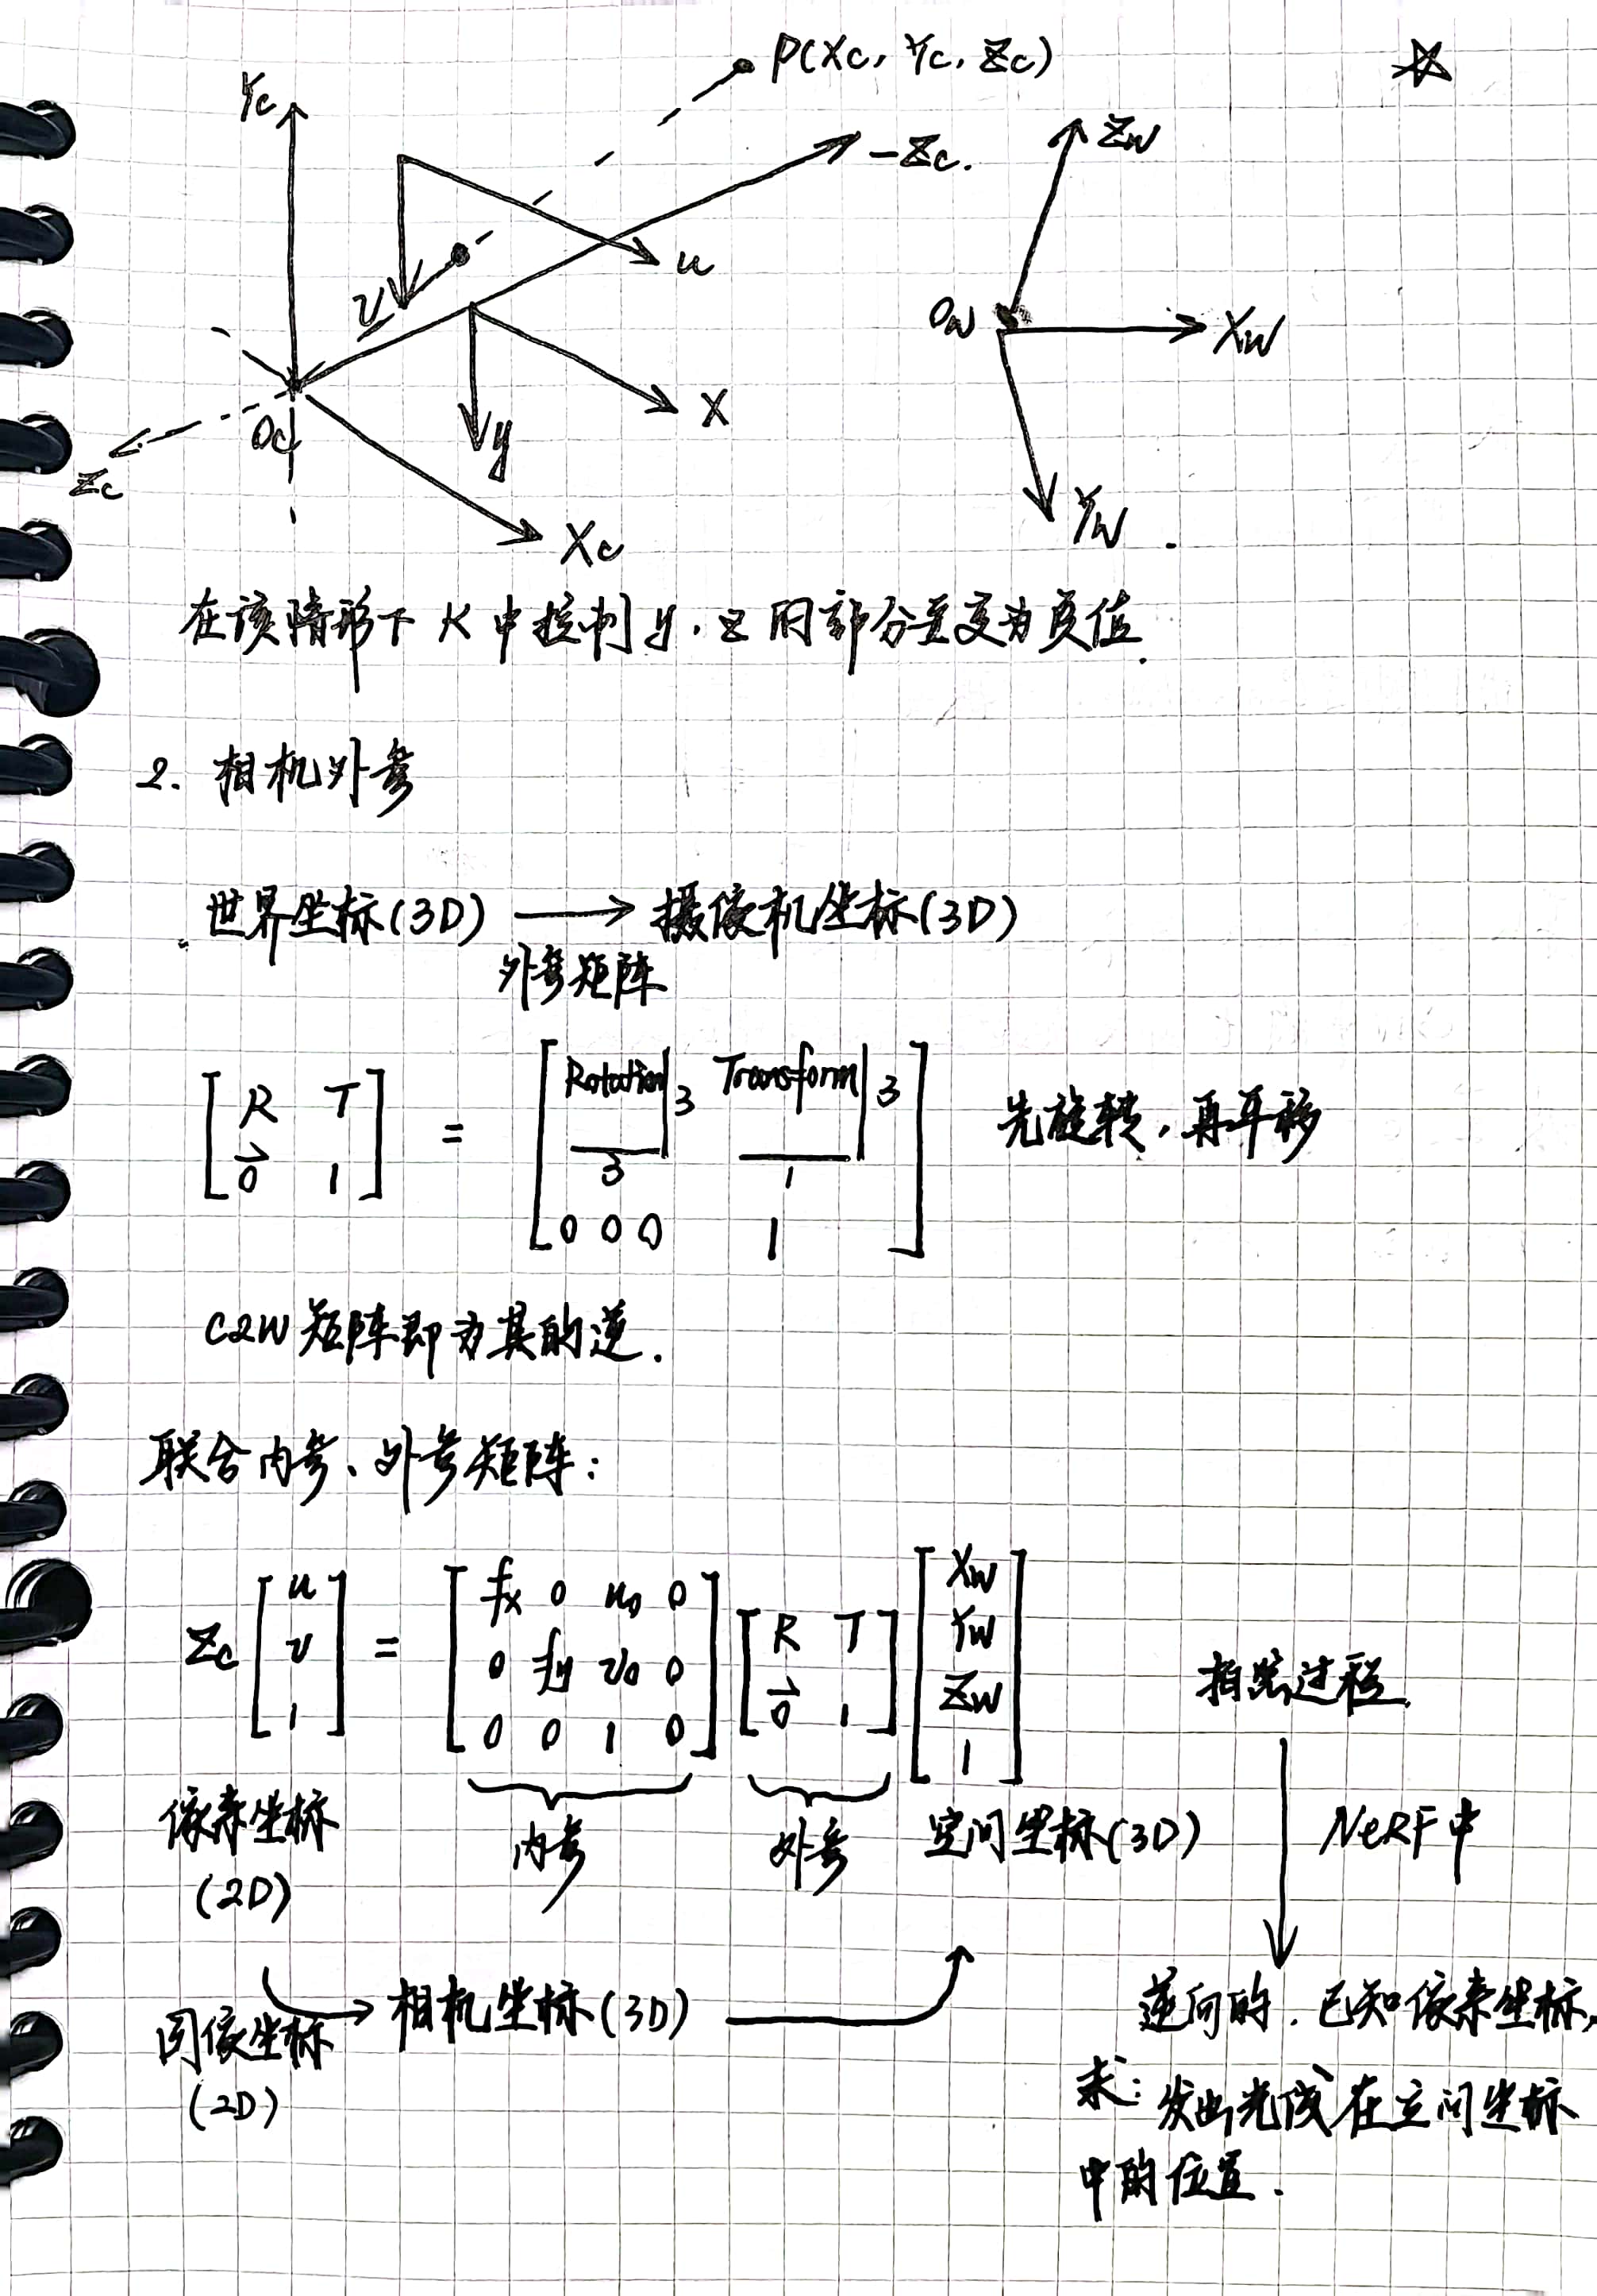 P(Xc, Yc, Zc)
☆
Yc
-Zc.
Zw
u
v
Ow
Xw
x
y
Oc
Zc
Xc
Yw
在该情形下 K 中控制 y, z 的部分要变为负值.
2. 相机外参
世界坐标(3D) → 摄像机坐标(3D)
外参矩阵
[R T; 0⃗ 1] = [Rotation|3 Transform|3; 3 1; 0 0 0 1] 先旋转, 再平移
C2W 矩阵即为其的逆.
联合内参、外参矩阵:
Zc [u; v; 1] = [fx 0 u0 0; 0 fy v0 0; 0 0 1 0] [R T; 0⃗ 1] [Xw; Yw; Zw; 1] 拍照过程
像素坐标 (2D)
内参
外参
空间坐标(3D)
NeRF中
图像坐标 (2D)
→ 相机坐标(3D)
逆向的. 已知像素坐标,
求: 发出光线在空间坐标
中的位置.